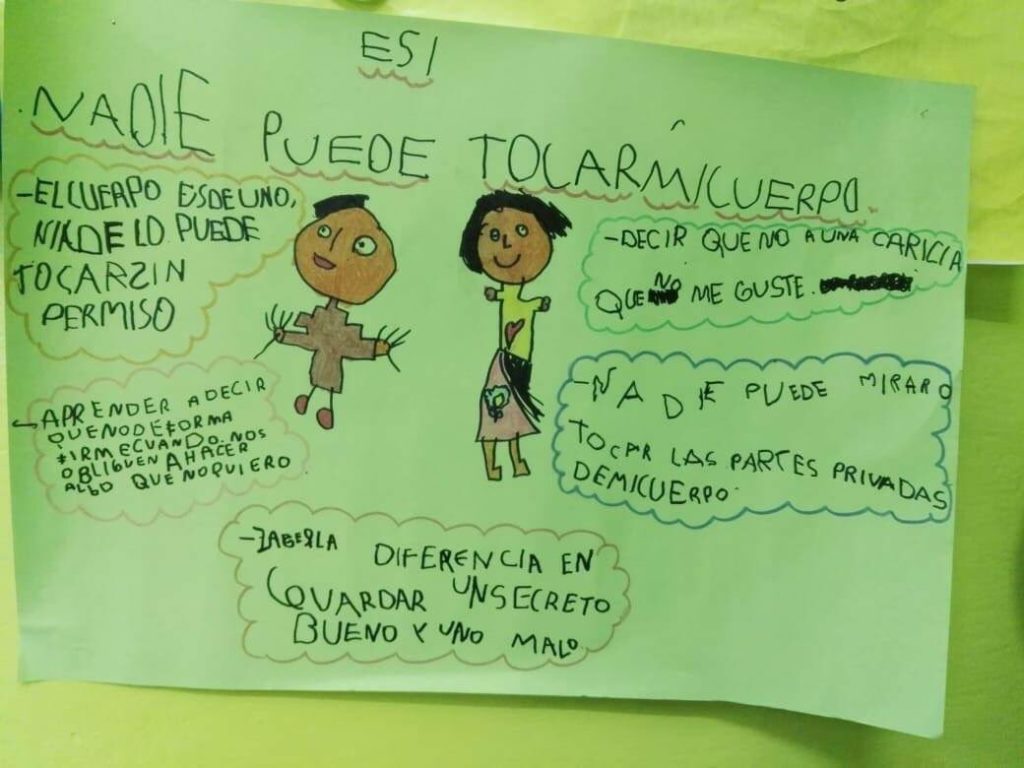 ESI
NADIE PUEDE TOCAR MI CUERPO.
-EL CUERPO ES DE UNO,
NINDE LO PUEDE
TOCAR ZIN
PERMISO
-DECIR QUE NO A UNA CARICIA
QUE NO ME GUSTE.
-APRENDER A DECIR
QUE NO DE FORMA
FIRME CUANDO NOS
OBLIGUEN A HACER
ALGO QUE NO QUIERO
-NADIE PUEDE MIRAR O
TOCAR LAS PARTES PRIVADAS
DE MI CUERPO
-ZABER LA DIFERENCIA EN
GUARDAR UN SECRETO
BUENO Y UNO MALO